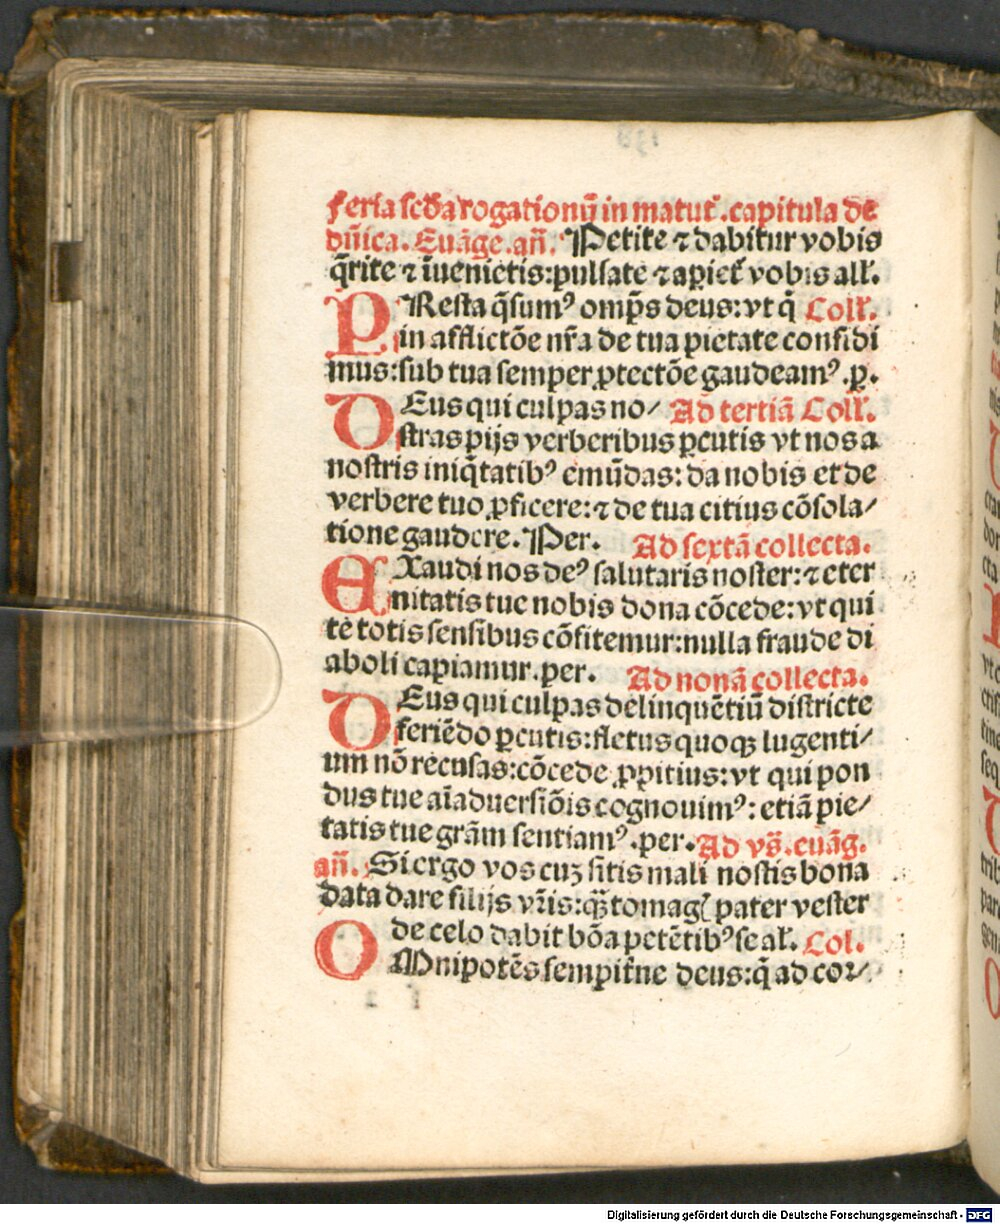 Feria scd̄a rogationū in matut᷑. capitula de
dn̄ica. Euāge. an̄. Petite ⁊ dabitur vobis
q̄rite ⁊ īuenietis: pulsate ⁊ apiet᷑ vobis all᷑.
PResta q̄sumꝰ omp̄s deus: vt q̄ Coll᷑.
in afflictōe nr̄a de tua pietate confidi
mus: sub tua semper ꝓtectōe gaudeamꝰ. ꝑ.
DEus qui culpas no⸗ Ad tertiā Coll᷑.
stras pijs verberibus ꝑcutis vt nos a
nostris iniq̄tatibꝰ emūdas: da nobis et de
verbere tuo ꝓficere: ⁊ de tua citius cōsola⸗
tione gaudere. Per. Ad sextā collecta.
EXaudi nos deꝰ salutaris noster: ⁊ eter
nitatis tue nobis dona cōcede: vt qui
te totis sensibus cōfitemur: nulla fraude di
aboli capiamur. per. Ad nonā collecta.
DEus qui culpas delinquētiū districte
feriēdo ꝑcutis: fletus quoqꝫ lugenti⸗
um nō recusas: cōcede ꝓpitius: vt qui pon
dus tue aīaduersiōis cognouimꝰ: etiā pie⸗
tatis tue grām sentiamꝰ. per. Ad vs̄. euāg.
an̄. Si ergo vos cuꝫ sitis mali nostis bona
data dare filijs vr̄is: qꝫ̄tomagꝭ pater vester
de celo dabit bōa petētibꝰ se al᷑. Col.
OMnipotēs sempit᷑ne deus: q̄ ad cor⸗
Digitalisierung gefördert durch die Deutsche Forschungsgemeinschaft - DFG